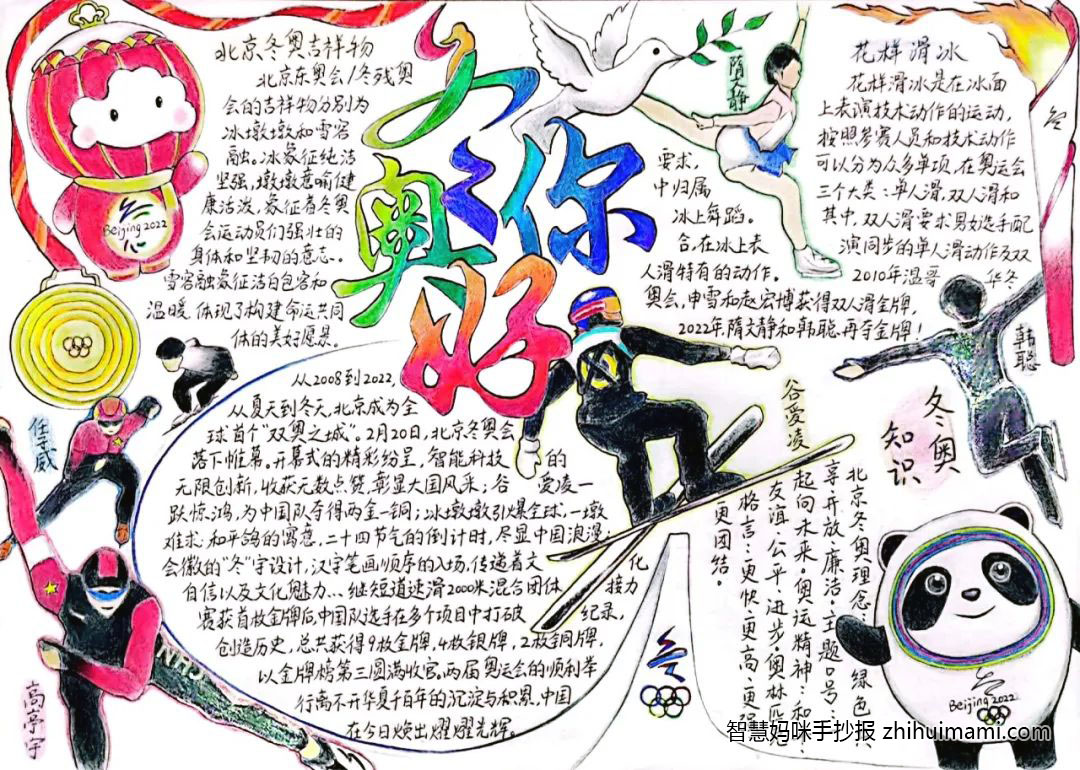 冬奥你好
北京冬奥吉祥物
北京东奥会/冬残奥
会的吉祥物分别为
冰墩墩和雪容
融。冰象征纯洁
坚强,墩墩意喻健
康活泼,象征着冬奥
会运动员们强壮的
身体和坚韧的意志..
雪容融象征洁白包容和
温暖,体现了构建命运共同
体的美好愿景。
Beijing 2022
隋文静
花样滑冰
花样滑冰是在冰面
上表演技术动作的运动,
按照参赛人员和技术动作
要求,可以分为众多单项,在奥运会
中归属三个大类:单人滑,双人滑和
冰上舞蹈。其中,双人滑要求男女选手配
合,在冰上表演同步的单人滑动作及双
人滑特有的动作。2010年温哥华冬
奥会,申雪和赵宏博获得双人滑金牌,
2022年,隋文静和韩聪再夺金牌!
韩聪
从2008到2022,
从夏天到冬天,北京成为全
球首个“双奥之城”。2月20日,北京冬奥会
落下帷幕。开幕式的精彩纷呈,智能科技的
无限创新,收获无数点赞,彰显大国风采;谷爱凌一
跃惊鸿,为中国队夺得两金一铜;冰墩墩引爆全球,一墩
难求;和平鸽的寓意,二十四节气的倒计时,尽显中国浪漫;
会徽的“冬”字设计,汉字笔画顺序的入场,传递着文化
自信以及文化魅力...继短道速滑2000米混合团体接力
赛获首枚金牌后,中国队选手在多个项目中打破纪录,
创造历史,总共获得9枚金牌,4枚银牌,2枚铜牌,
以金牌榜第三圆满收官。两届奥运会的顺利举
行离不开华夏千百年的沉淀与积累,中国
在今日焕出耀耀光辉。
任子威
高亭宇
谷爱凌
冬奥
知识
北京冬奥理念:绿色、共
享、开放、廉洁。主题口号:一
起向未来。奥运精神:和平
友谊,公平,进步。奥林匹克
格言:更快、更高、更强、
更团结。
Beijing 2022
智慧妈咪手抄报 zhihuimami.com